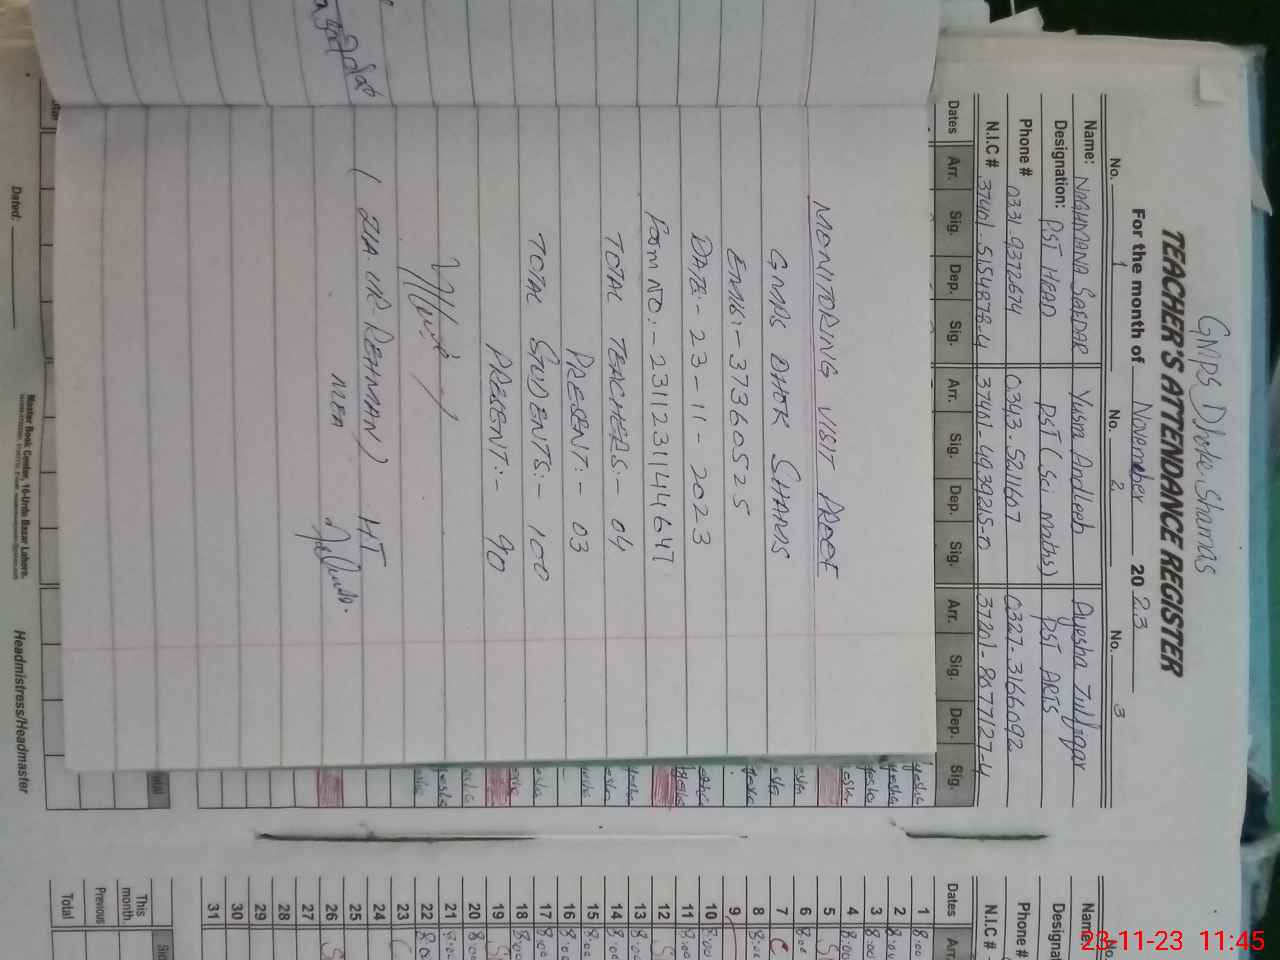 GMPS Dhoke Shamas
TEACHER'S ATTENDANCE REGISTER
For the month of November 2023
No. 1 No. 2 No. 3
Name: NAGHMANA SARDAR Yusra Andleeb Ayesha Zulfiqar
Designation: PST HEAD PST (Sci Maths) PST ARTS
Phone # 0331-9372674 0343-5211607 0327-3166092
N.I.C # 37401-5154878-4 37401-4939215-0 37201-8677127-4
Dates Arr. Sig. Dep. Sig. Arr. Sig. Dep. Sig. Arr. Sig. Dep. Sig.
MONITORING VISIT PROOF
GMPS DHOK SHAMS
EMIS:- 37360525
DATE:- 23-11-2023
Form NO:- 2311231144647
TOTAL TEACHERS:- 04
PRESENT:- 03
TOTAL STUDENTS:- 100
PRESENT:- 90
(ZIA-UR-REHMAN) HT
MEA
Dated:
Master Book Center, 16-Urdu Bazar Lahore.
Headmistress/Headmaster
No.
Name
Designat
Phone #
N.I.C # -
Dates Arr
1 8:00
2 8:00
3 8:00
4 8:00
5 S
6 8:00
7 C
8 8:00
9
10 8:00
11 8:00
12 S
13 8:00
14 8:00
15 8:00
16 8:00
17 8:00
18 8:00
19 S
20 8:00
21 8:00
22 8:0
23 C
24
25
26 S
27
28
29
30
31
This month
Previous
Total
23-11-23 11:45